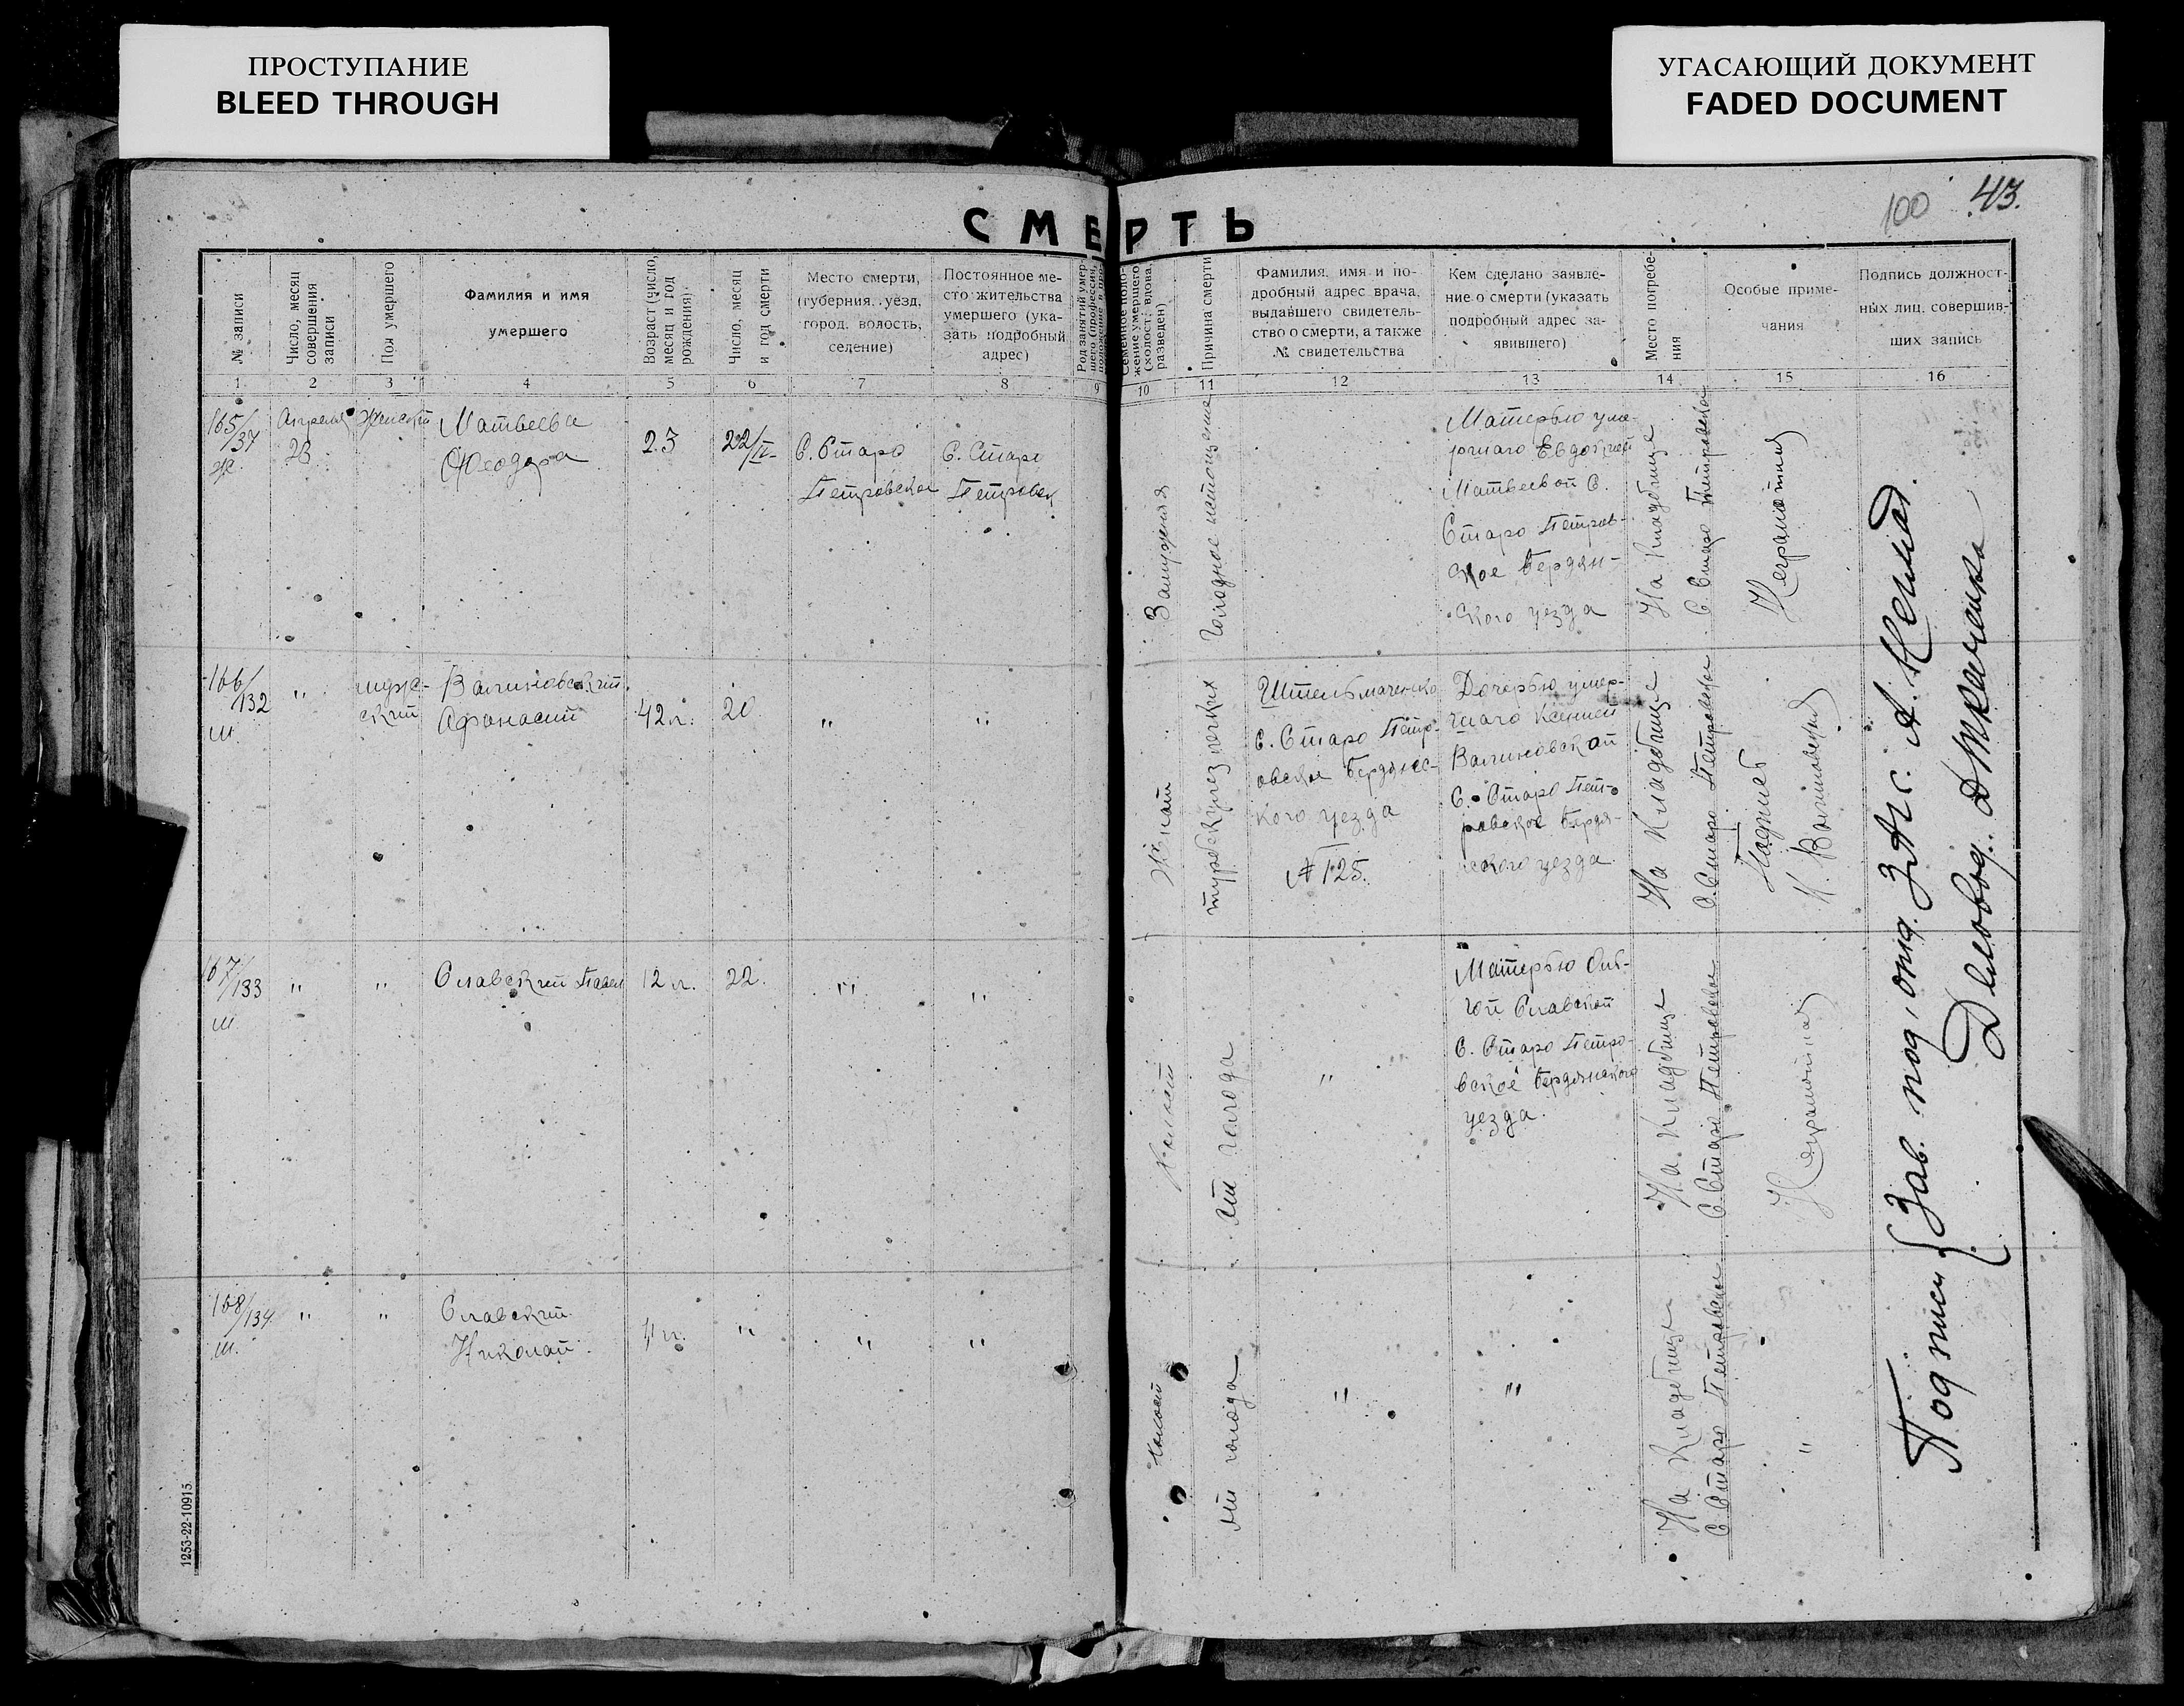 ПРОСТУПАНИЕ
BLEED THROUGH
УГАСАЮЩИЙ ДОКУМЕНТ
FADED DOCUMENT
100 43.
СМЕРТЬ
№ записи
Число, месяц совершения записи
Пол умершего
Фамилия и имя
умершего
Возраст (число, месяц и год рождения).
Число, месяц и год смерти
Место смерти,
(губерния, уезд,
город, волость,
селение)
Постоянное ме-
сто жительства
умершего (ука-
зать подробный
адрес)
Род занятий умер-
шего (профессия,
Семейное поло-
жение умершего
(холост, вдова,
разведен)
Причина смерти
Фамилия, имя и по-
дробный адрес врача,
выдавшего свидетель-
ство о смерти, а также
№ свидетельства
Кем сделано заявле-
ние о смерти (указать
подробный адрес за-
явившего)
Место погребе-
ния
Особые приме-
чания
Подпись должност-
ных лиц, совершив-
ших запись
1 2 3 4 5 6 7 8 9 10 11 12 13 14 15 16
165/37
ж
Апреля
23
Женский
Матвеева
Феодора
23
22/IV
С. Старо
Петровское
С. Старо
Петровск
Замужняя
Голодное истощение
Матерью уме-
ршаго Евдокией
Матвеевой С.
Старо Петров-
ское Бердян-
ского уезда
На Кладбище
С Старо Петровское
Неграмотная
166/132
м
"
мужс-
кий
Афанасий
42 л.
20
"
"
Женат
туберкулез легких
Штельмаченко
с. Старо Петр-
овское Бердянс-
кого уезда
№ 125.
Дочерью умер-
шаго Ксенией
С. Старо Пет-
ровское Бердя-
нского уезда
На Кладбище
С. Старо Петровское
Подпись
167/133
м
"
"
Славский Павел
12 л.
22.
"
"
Холост
от голода
"
Матерью Оль-
гой Славской
С. Старо Петро-
вское Бердянского
уезда.
На Кладбище
С Старо Петровское
Неграмотная
168/134
м.
"
"
Славский
Николай
"
"
"
Холост
от голода
"
"
На Кладбище
С Старо Петровское
"
Подписи { Зав. под. отд. ЗАГС.
Деловод. Ткаченко
1253-22-10915